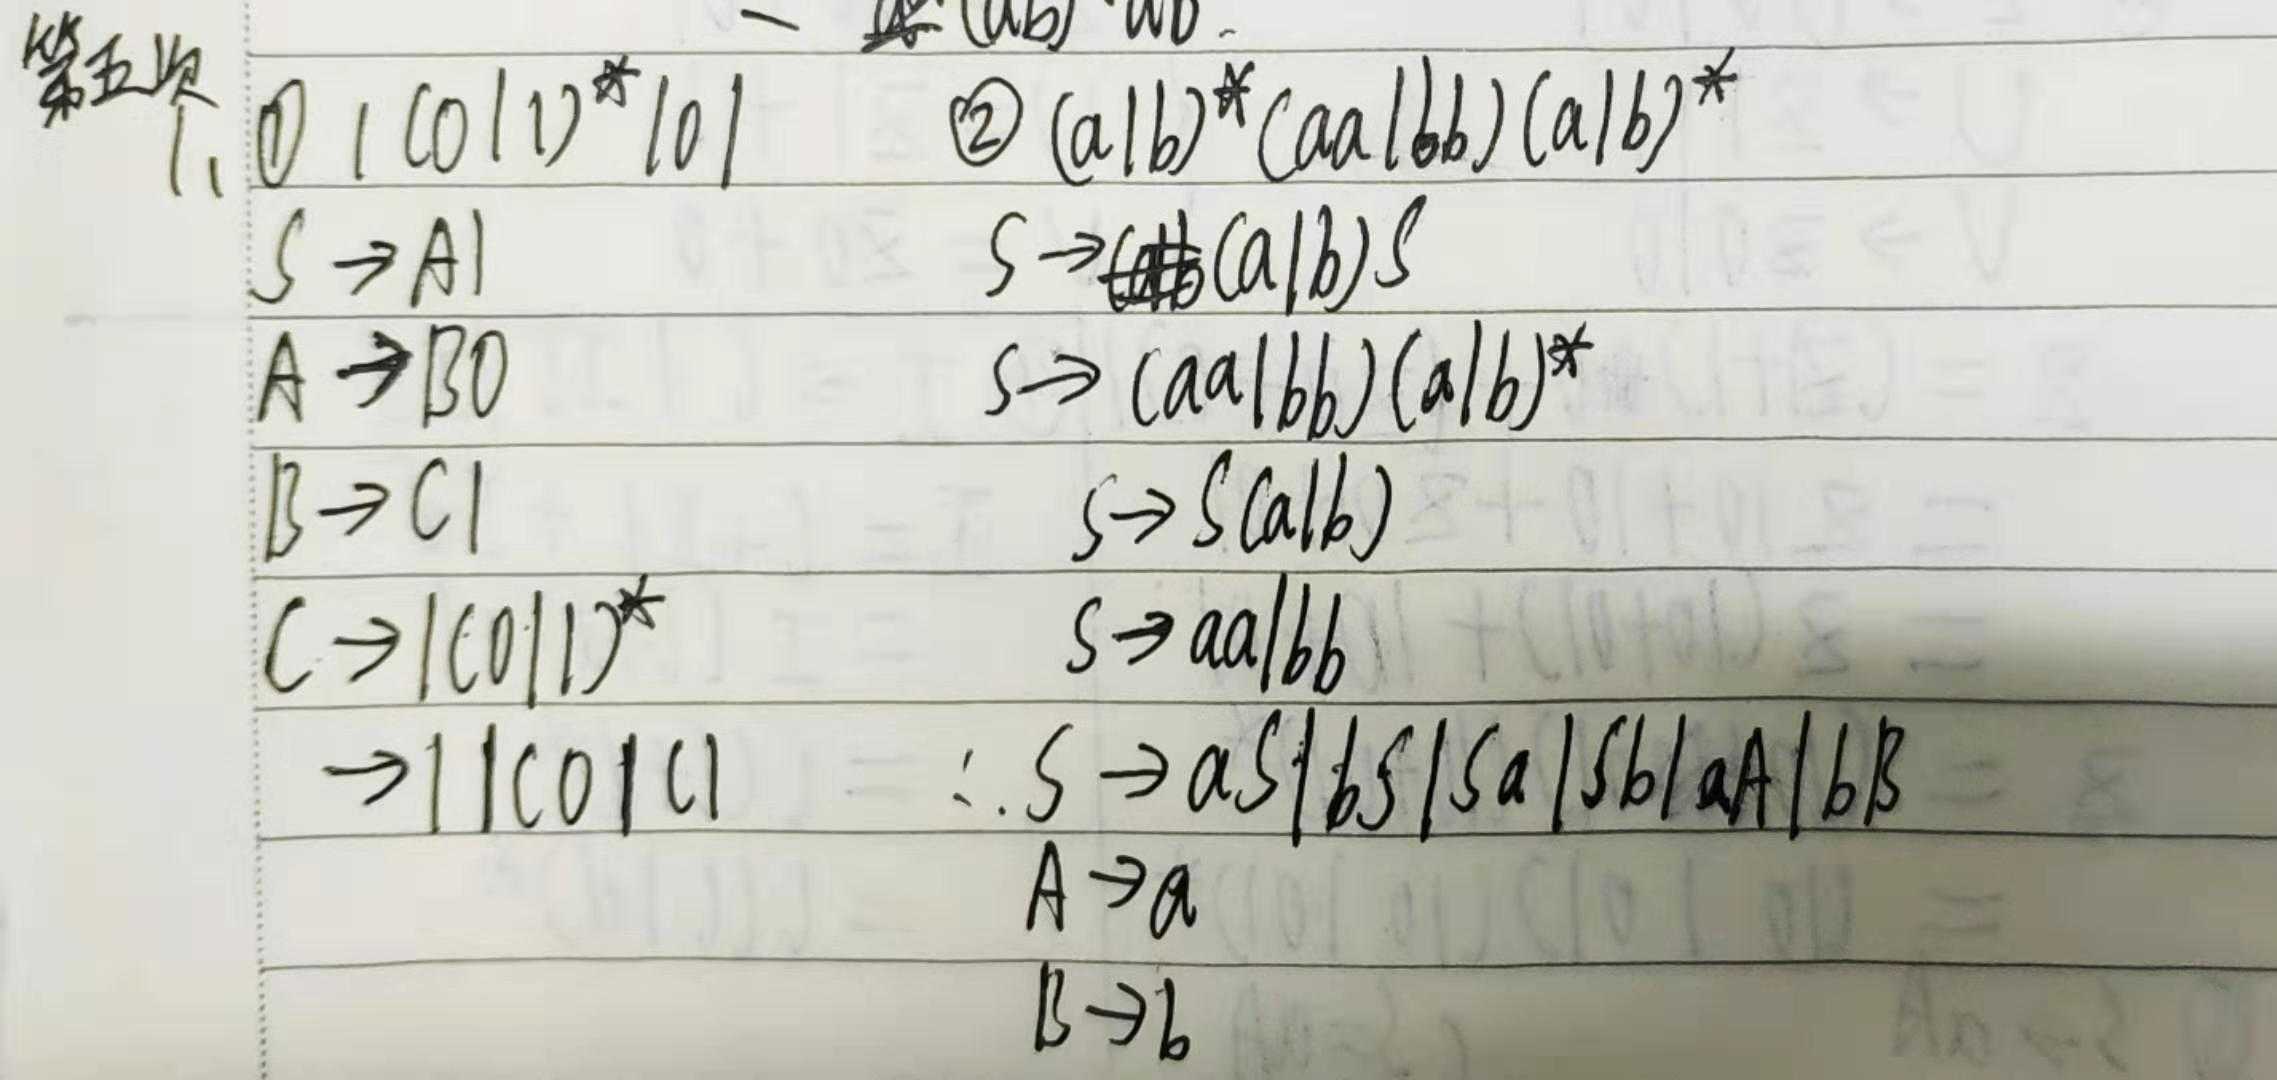 (ab)* ab.
第五次
1. ① 1(0|1)*101
S → A1
A → B0
B → C1
C → 1(0|1)*
→ 1|C0|C1
② (a|b)*(aa|bb)(a|b)*
S → (a|b)S
S → (aa|bb)(a|b)*
S → S(a|b)
S → aa|bb
∴ S → aS|bS|Sa|Sb|aA|bB
A → a
B → b